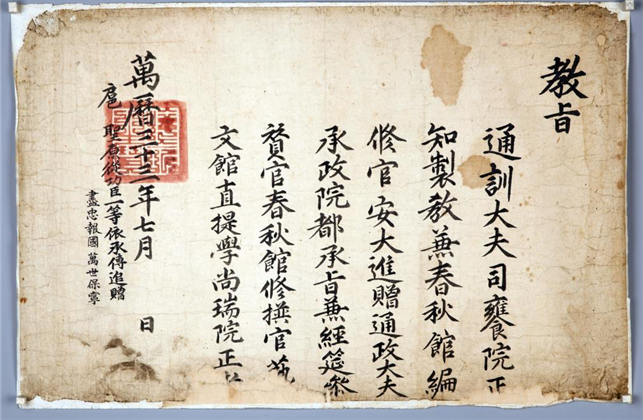 教旨
通訓大夫司饔院正
知製教兼春秋館編
修官安大進贈通政大夫
承政院都承旨兼經筵參
贊官春秋館修撰官藝
文館直提學尚瑞院正
萬曆三十三年七月 日
扈聖原從功臣一等依承傳追贈
盡忠報國 萬世保寧